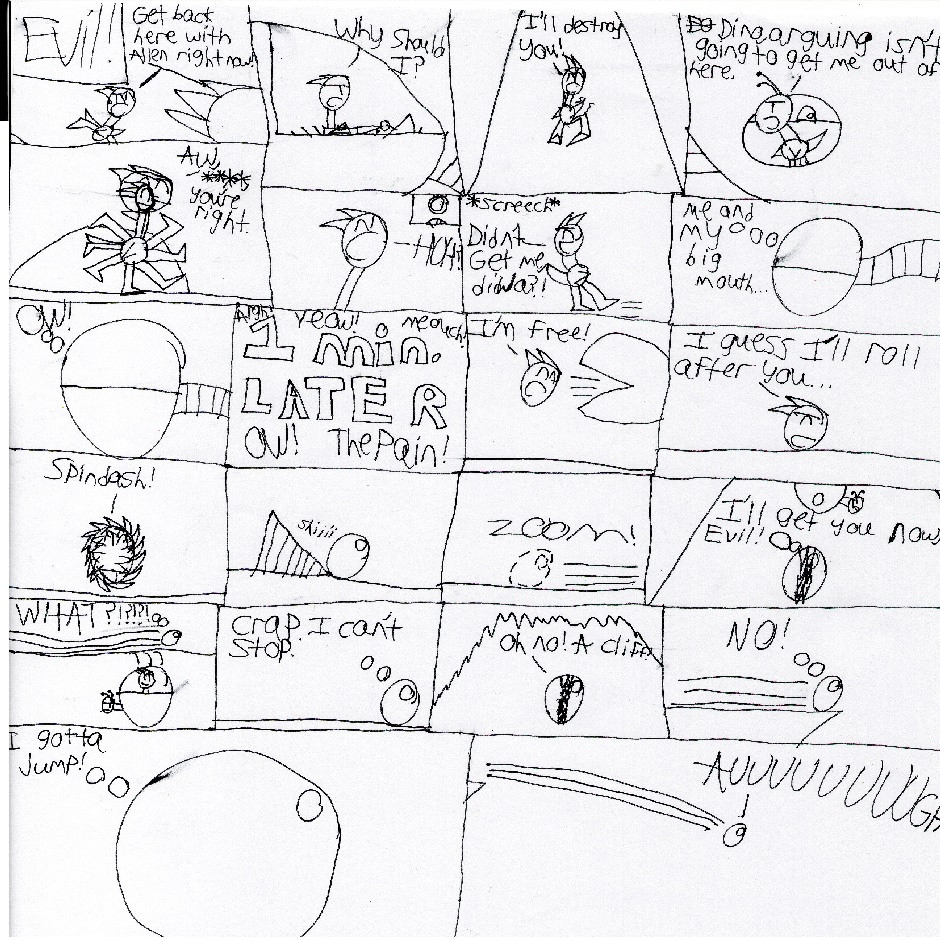 Evil!
Get back
here with
Allen right now!
Why Should
I?
I'll destroy
you!
Dingarguing isn't
going to get me out of
here.
AW,
****
you're
right.
HCH!
*screech*
Didn't
Get me,
didya?!
me and
my
big
mouth...
OW!
Argh
YEOW!
meouch!
1 min.
LATER
OW! The Pain!
I'm Free!
I guess I'll roll
after you...
Spindash!
skiiii
ZOOM!
I'll get you now,
Evil!
WHAT?!?!?!
Crap. I can't
Stop.
Oh no! A cliff!
NO!
I gotta
Jump!
AUUUUUUUUGH